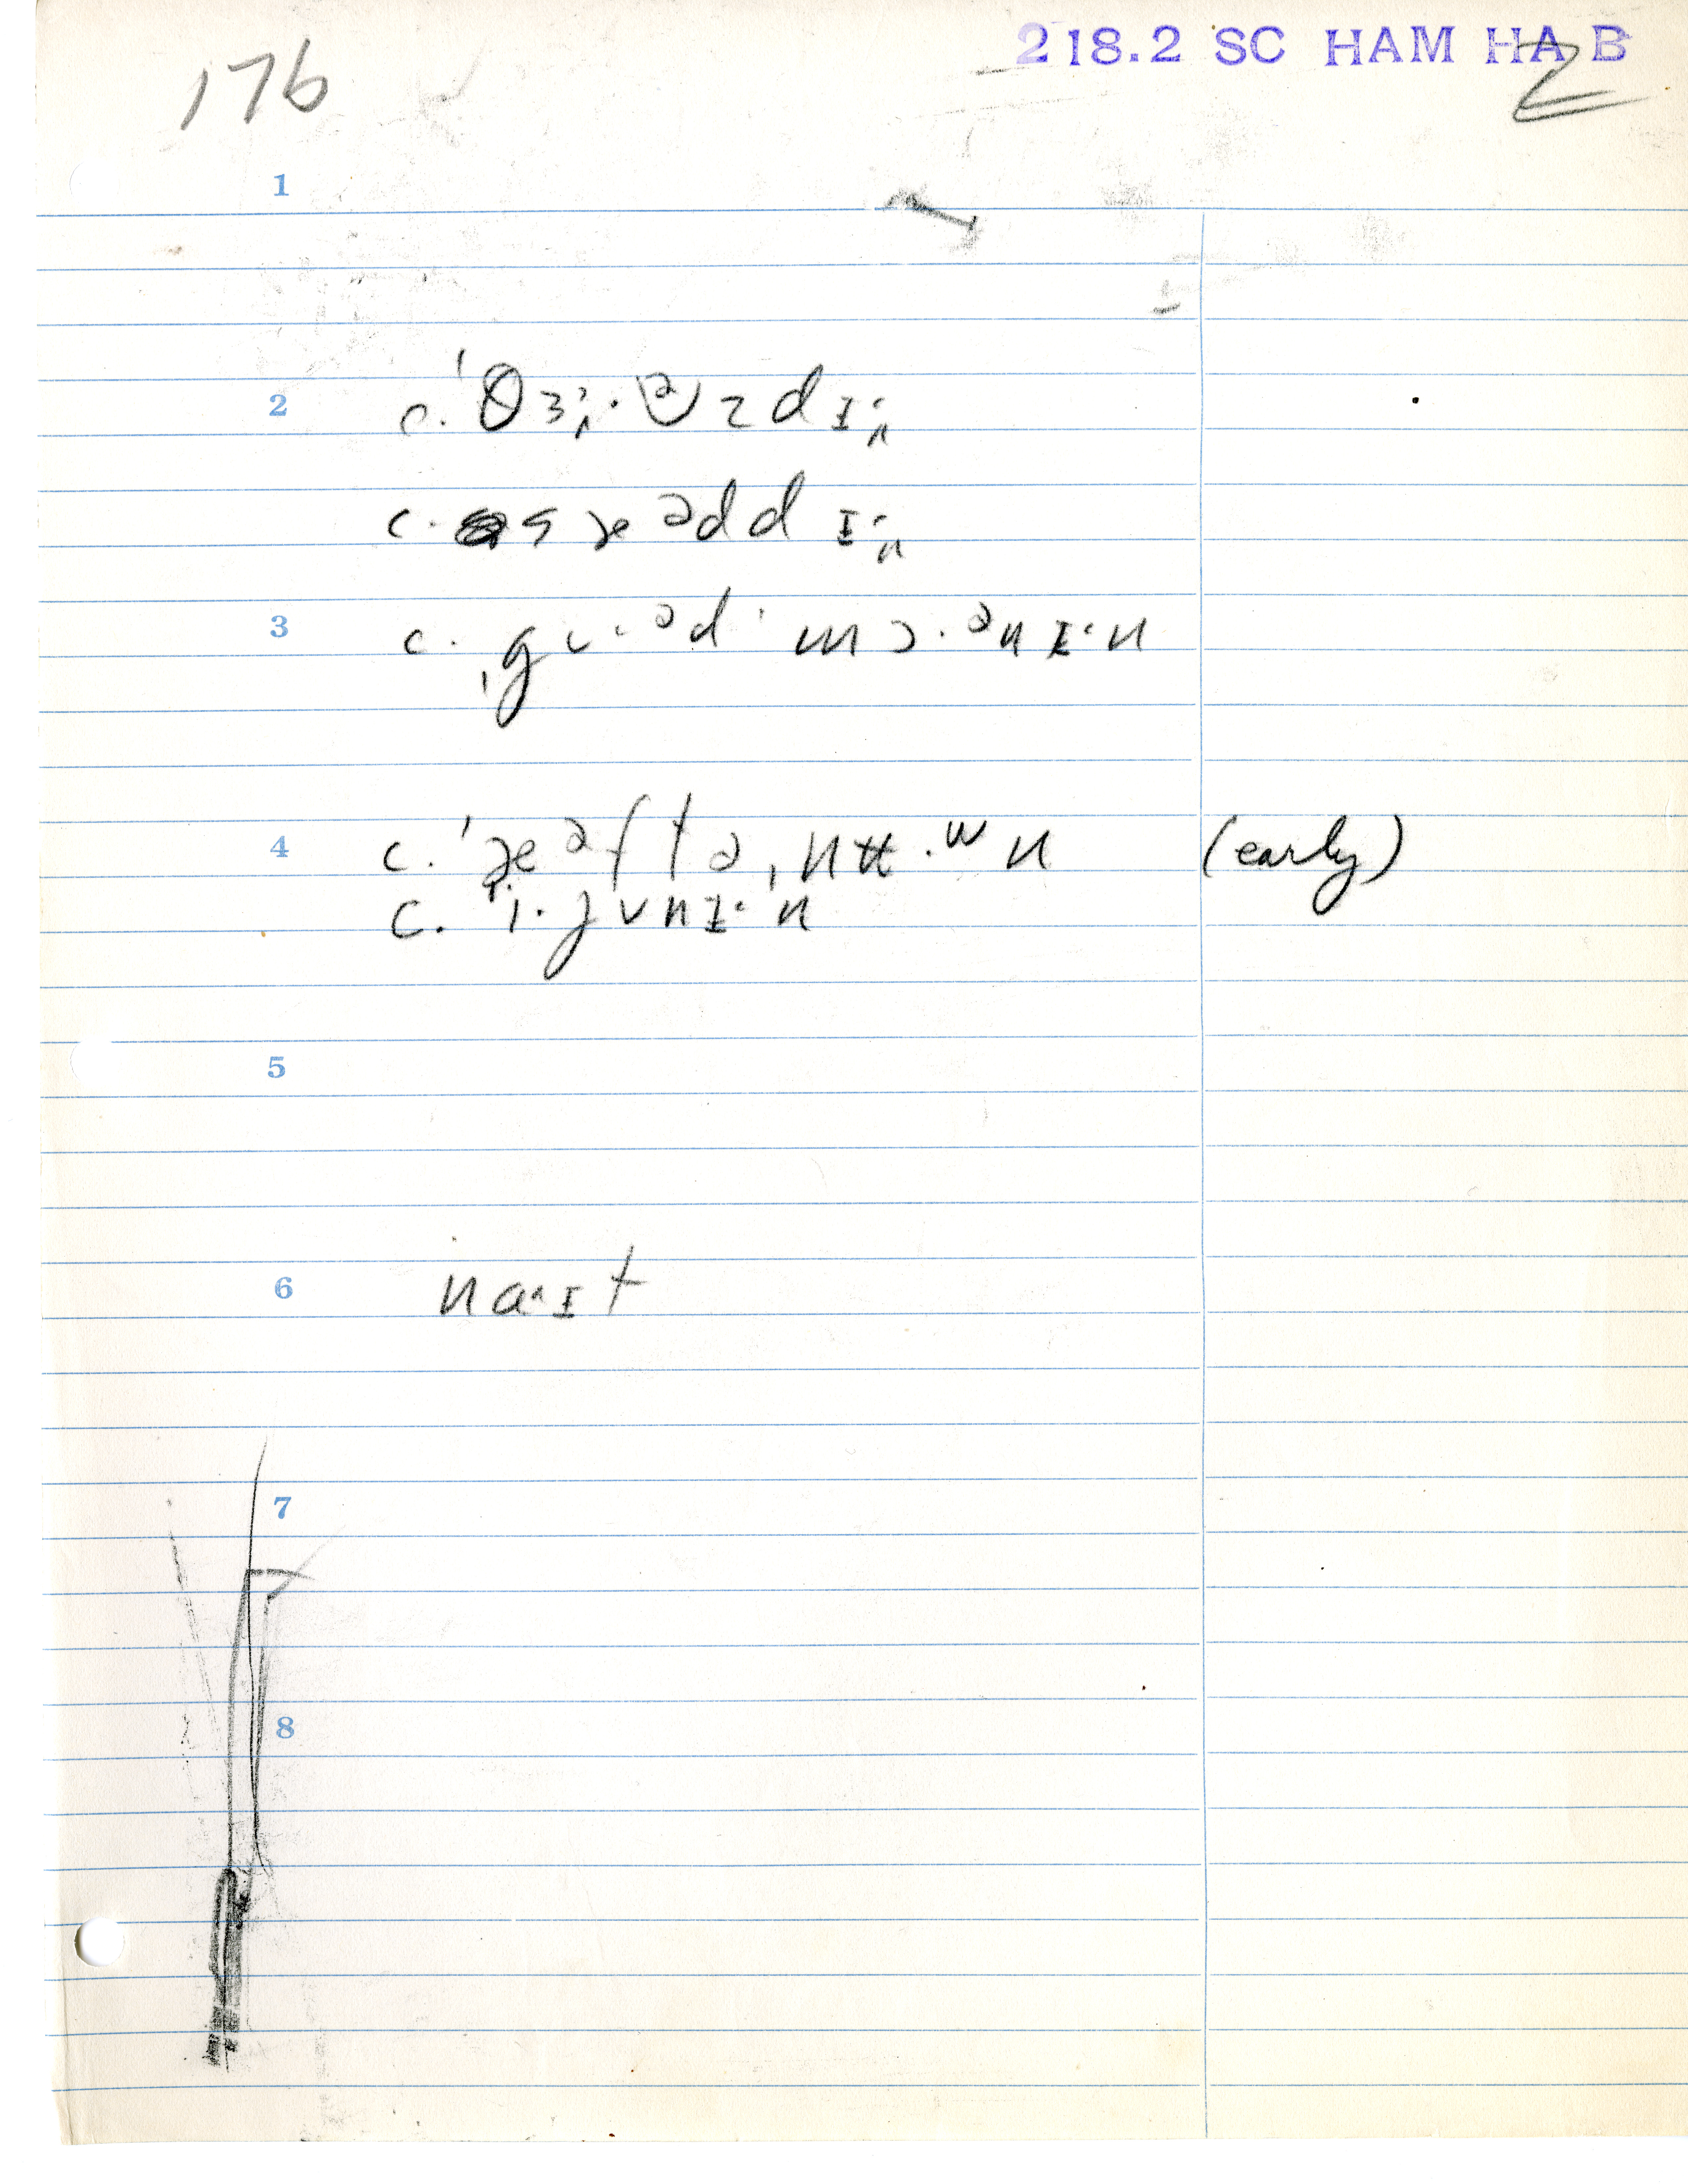 176
218.2 SC HAM HA B
2
1
2 c. ˈθɜ˞·ᵊzdɪ˞
c. sæᵊddɪ˞
3 c. ˌgʊ·ᵊd ˈmɔ·ᵊnɪ·n
4 c. ˈæᵊftəˌnʉ·ʷn (early)
c. ˈi·jvnɪ·n
5
6 naˑɪt
7
8